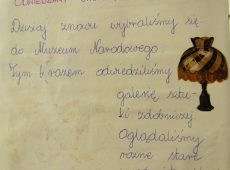 Dzisiaj znowu wybraliśmy się
do Muzeum Narodowego
Tym razem odwiedziliśmy
galerię sztu-
ki zdobniczy
Oglądaliśmy
rożne stare